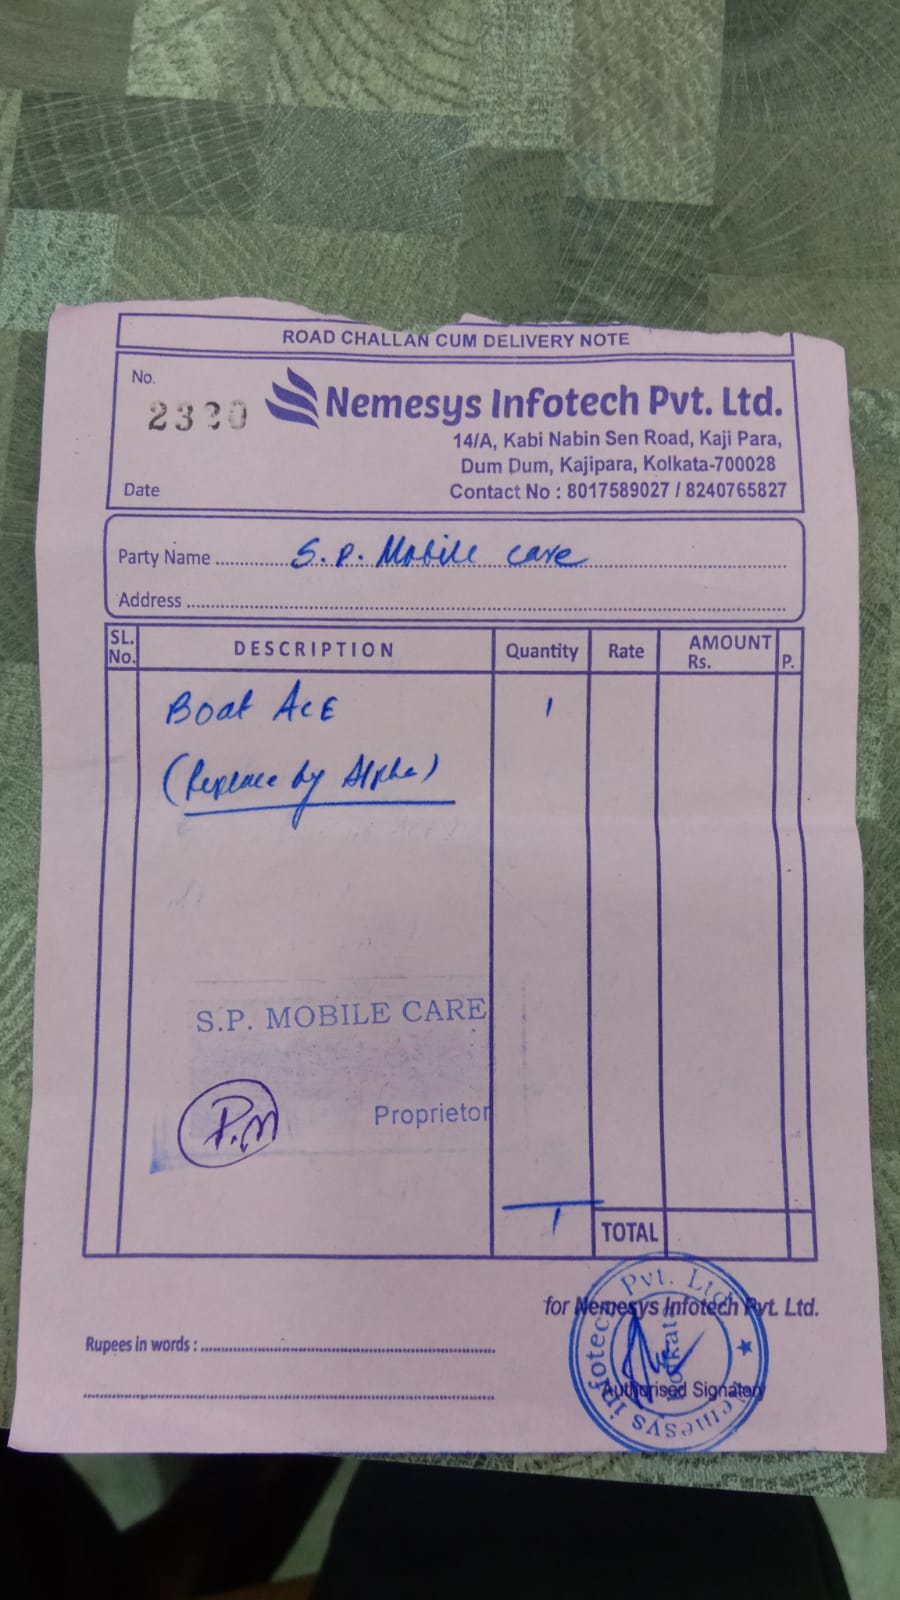 ROAD CHALLAN CUM DELIVERY NOTE
No.
2320
Nemesys Infotech Pvt. Ltd.
14/A, Kabi Nabin Sen Road, Kaji Para,
Dum Dum, Kajipara, Kolkata-700028
Date
Contact No : 8017589027 / 8240765827
Party Name S.P. Mobile care
Address
SL. No. DESCRIPTION Quantity Rate AMOUNT Rs. P.
Boat AcE 1
(Replace by Alpha)
S.P. MOBILE CARE
P.M
Proprietor
1
TOTAL
for Nemesys Infotech Pvt. Ltd.
Rupees in words :
Authorised Signatory
Nemesys Infotech Pvt. Ltd.
Kolkata